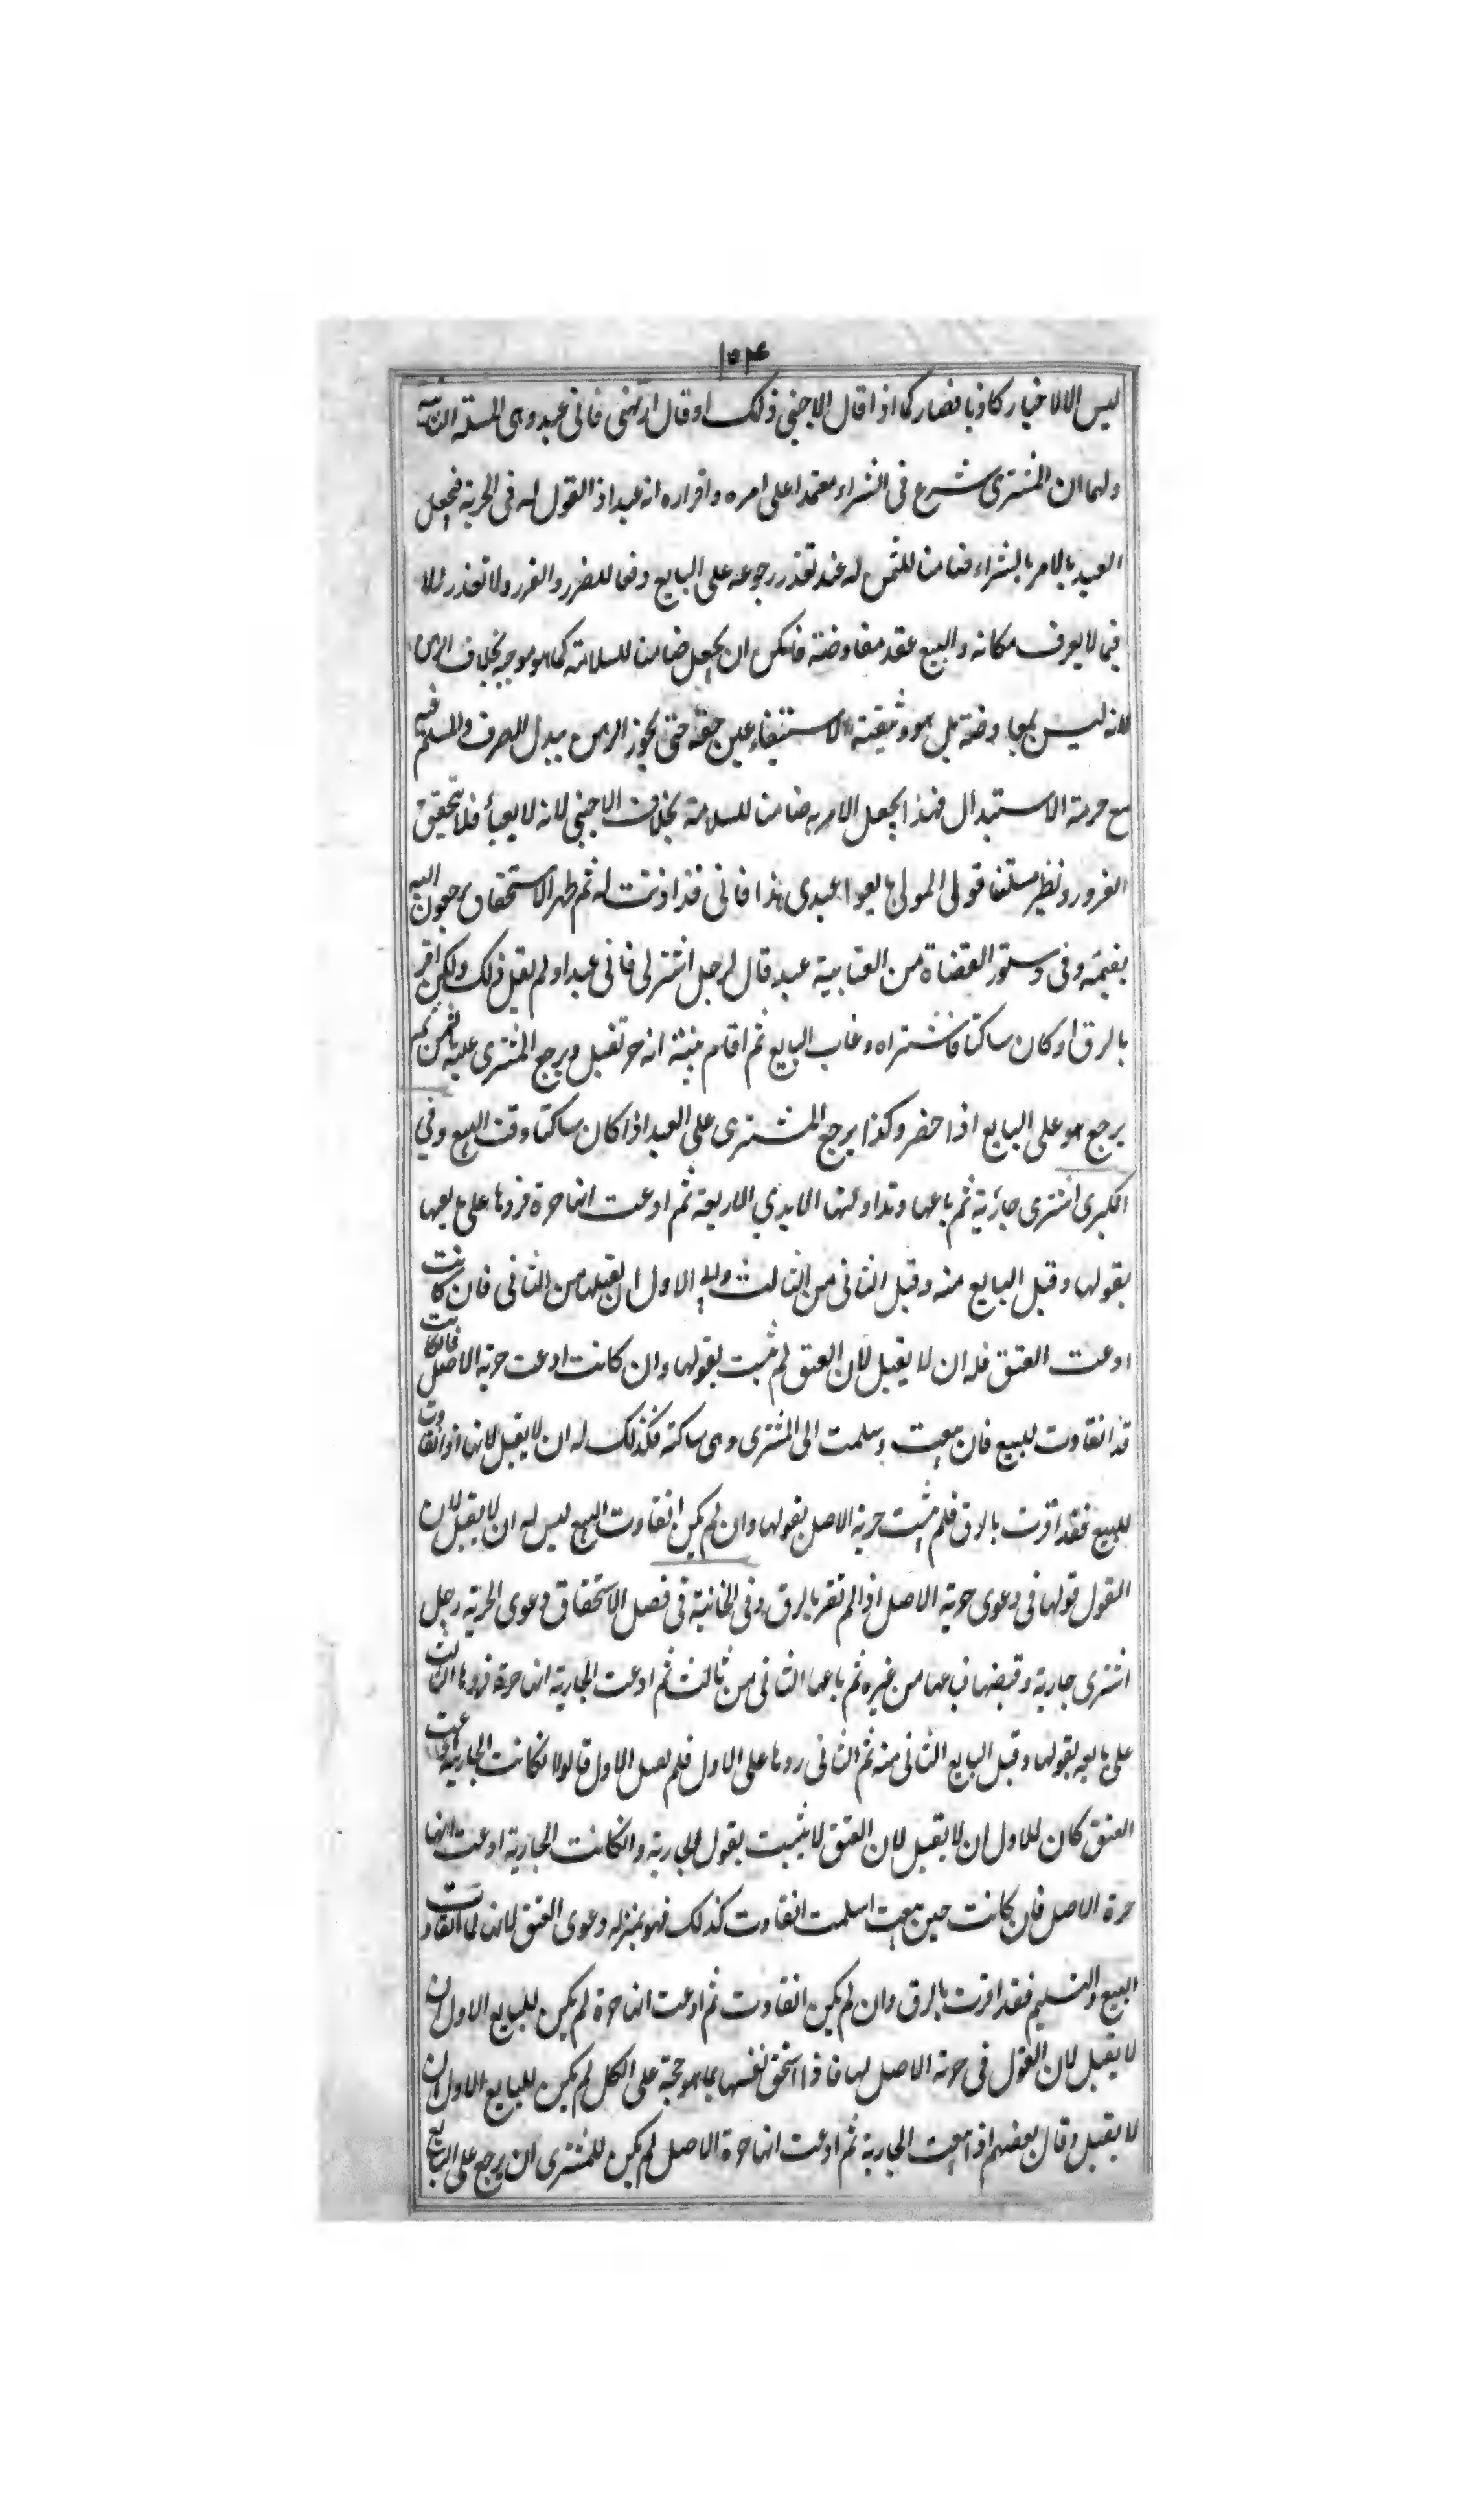 ١٥٤
ليس الا الاخبار كاذبا فصار كما اذا قال الاجنبى ذلك او قال ارتهنى فانى عبد وهى المسئلة الثانية
ولهما ان المشترى شرع فى الشراء معتمدا على امره واقراره انه عبد اذ القول له فى الحرية فيجعل
العبد بالامر بالشراء ضامنا للثمن له عند تعذر رجوعه على البايع دفعا للضرر والغرر ولا تعذر الا
فيما لا يعرف مكانه والبيع عقد معاوضة فامكن ان يجعل ضامنا للسلامة كما هو موجبه بخلاف الرهن
لانه ليس بمعاوضة بل هو وثيقة لاستيفاء عين حقه حتى يجوز الرهن ببدل الصرف والمسلم فيه
مع حرمة الاستبدال فلهذا يجعل الامر به ضامنا للسلامة بخلاف الاجنبى لانه لا يعبأ فلا يتحقق
الغرور ونظير مسئلتنا قول المولى بايعوا عبدى هذا فانى قد اذنت له ثم ظهر الاستحقاق يرجعون اليه
بقيمته وفى دستور القضاة من العتابية عبد قال لرجل اشترنى فانى عبد او لم يقل ذلك ولكن اقر
بالرق او كان ساكتا فاشتراه وغاب البايع ثم اقام بينة انه حر تقبل ويرجع المشترى عليه بالثمن ثم
يرجع هو على البايع اذا حضر وكذا يرجع المشترى على العبد اذا كان ساكتا وقت البيع وفى
الكبرى اشترى جارية ثم باعها وتداولتها الايدي الاربعة ثم ادعت انها حرة فردها على بايعها
بقولها وقبل البايع منه وقبل الثانى من الثالث وابى الاول ان يقبلها من الثانى فان كانت
ادعت العتق فله ان لا يقبل لان العتق لم يثبت بقولها وان كانت ادعت حرية الاصل فان كانت
قد انقادت للبيع فان بيعت وسلمت الى المشترى وهى ساكتة فكذلك له ان لا يقبل لانها اذا انقادت
للبيع فقد اقرت بالرق فلم يثبت حرية الاصل بقولها وان لم يكن انقادت للبيع ليس له ان لا يقبل لان
القول قولها فى دعوى حرية الاصل اذا لم تقر بالرق وفى الخانية فى فصل الاستحقاق ودعوى الحرية رجل
اشترى جارية وقبضها فباعها من غيره ثم باعها الثانى من ثالث ثم ادعت الجارية انها حرة فردها الثالث
على بايعه بقولها وقبل البايع الثانى منه ثم الثانى ردها على الاول فلم يقبل الاول قالوا ان كانت الجارية ادعت
العتق كان للاول ان لا يقبل لان العتق لا يثبت بقول الجارية وان كانت الجارية ادعت انها
حرة الاصل فان كانت حين بيعت اسلمت انقادت كذلك فهو بمنزلة دعوى العتق لانها لما انقادت
البيع والتسليم فقد اقرت بالرق وان لم يكن انقادت ثم ادعت انها حرة لم يكن للبايع الاول ان
لا يقبل لان القول فى حرية الاصل لها فاذا استحق نفسها بما هو حجة على الكل لم يكن للبايع الاول ان
لا يقبل وقال بعضهم اذا بيعت الجارية ثم ادعت انها حرة الاصل لم يكن للمشترى ان يرجع على البايع